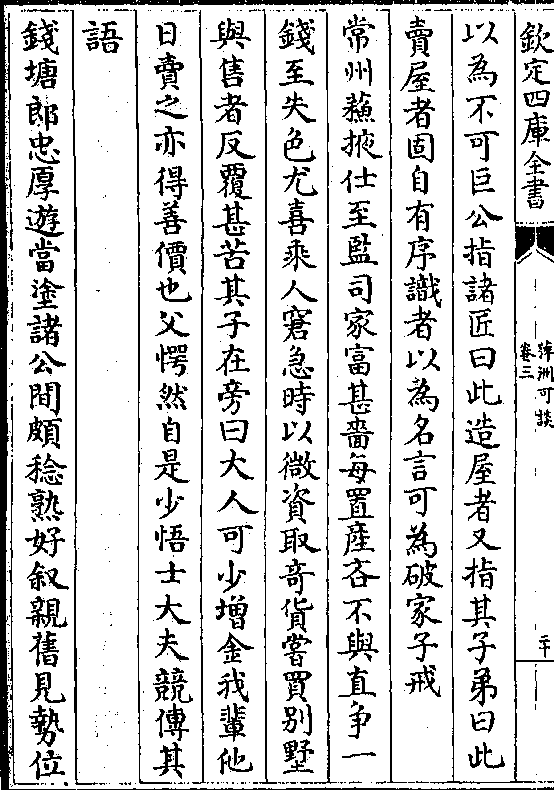 欽定四庫全書
萍洲可談
卷三
二十
以為不可巨公指諸匠曰此造屋者又指其子弟曰此
賣屋者固自有序識者以為名言可為破家子戒
常州蘇掖仕至監司家富甚嗇每置產吝不與直爭一
錢至失色尤喜乘人窘急時以微資取奇貨嘗買别墅
與售者反覆甚苦其子在旁曰大人可少增金我輩他
日賣之亦得善價也父愕然自是少悟士大夫競傳其
語
錢塘郎忠厚遊當塗諸公間頗稔熟好叙親舊見勢位